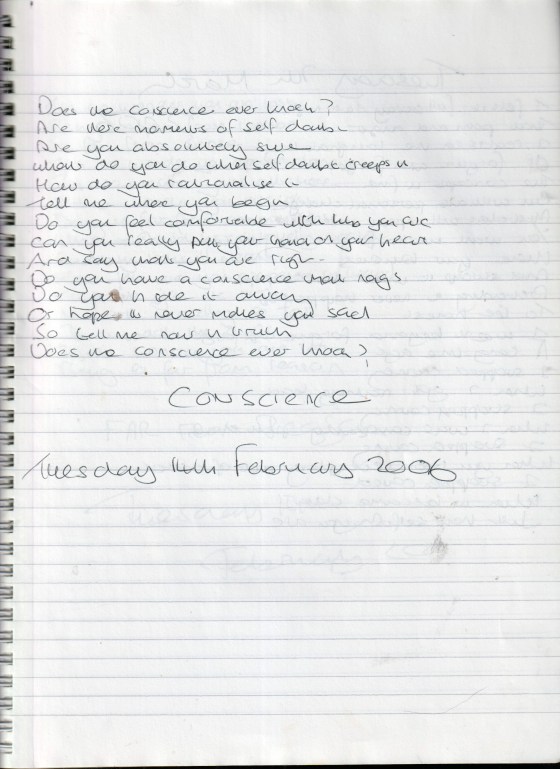 Does the conscience ever knock?
Are there moments of self doubt
Are you absolutely sure
what do you do when self doubt creeps in
How do you rationalise it
Tell me where you begin
Do you feel comfortable with who you are
can you really put your hand on your heart
And say that you are right.
Do you have a conscience that nags
Do you hide it away
Or hope it never makes you sad
So tell me now in truth
Does the conscience ever knock?
CONSCIENCE
Tuesday 14th February 2006